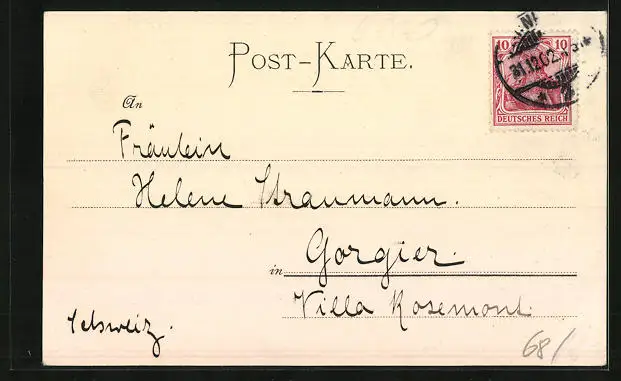 POST-KARTE.
10 10
DEUTSCHES REICH
31.12.02.
An
Fräulein
Helene Straumann.
in Gorgier.
Villa Rosemont.
Schweiz.
68/